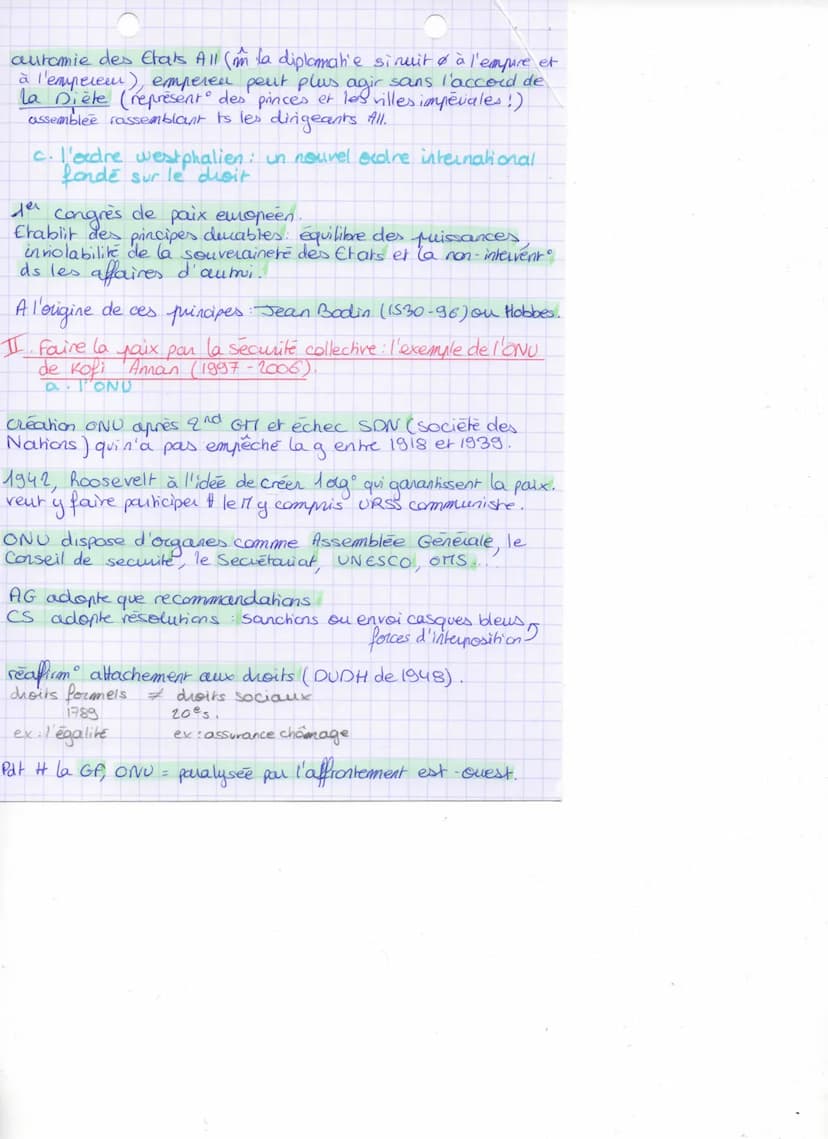 automie des Etats All (m̂ la diplomatie si nuit ∅ à l'empire et
à l'empereur), empereu peut plus agir sans l'accord de
la Diète (représent° des pinces et les villes impériales !)
assemblée rassemblant ts les dirigeants All.
c. l'ordre westphalien : un nouvel ordre international
fondé sur le droit
1er congrès de paix européen.
Etablit des pincipes durables : équilibre des puissances,
inviolabilité de la souveraineté des Etats et la non-intervent°
ds les affaires d'autrui.
A l'origine de ces principes : Jean Bodin (1530-96) ou Hobbes.
II. Faire la paix par la sécurité collective : l'exemple de l'ONU
de Kofi Annan (1997-2006).
a. l'ONU
création ONU après 2nd GM et échec SDN (société des
Nations) qui n'a pas empêché la g entre 1918 et 1939.
1942, Roosevelt à l'idée de créer 1 org° qui garantissent la paix.
veut y faire participer # le M y compris URSS communiste.
ONU dispose d'organes comme Assemblée Générale, le
Conseil de securité, le Secrétariat, UNESCO, OMS...
AG adopte que recommandations
CS adopte résolutions : sanctions ou envoi casques bleus
forces d'interposition
réaffirm° attachement aux droits (DUDH de 1948).
droits formels ≠ droits sociaux
1789 20e s.
ex : l'égalité ex : assurance chômage
Pdt # la GF, ONU = paralysée par l'affrontement est-ouest.